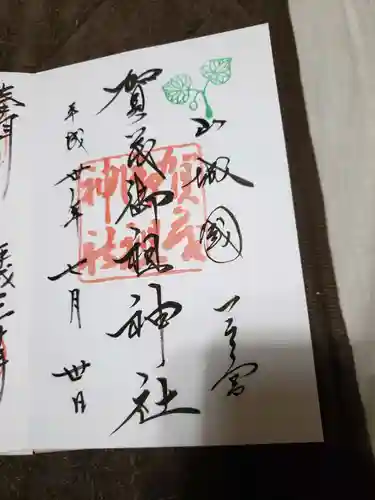 山城國一之宮
賀茂御祖神社
平成卅年七月卅日
賀茂
御祖
神社